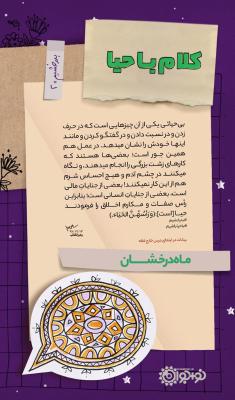 کلام با حیا
بی‌حیائی یکی از آن چیزهایی است که در حرف
زدن و در نسبت دادن و در گفتگو کردن و مانند
اینها خودش را نشان میدهد. در عمل هم
همین جور است؛ بعضی‌ها هستند که
کارهای زشت بزرگی را انجام میدهند، و نگاه
میکنند در چشم آدم و هیچ احساس شرم
هم از این کار نمیکنند! بعضی از جنایات مالی
است، بعضی از جنایات انسانی است؛ بنابراین
رأس صفات و مکارم اخلاق را فرمودند
حیا [است] (وَ رَأسُهُنَّ الحَیاء.)
بیانات در ابتدای درس خارج فقه
ماه درخشان